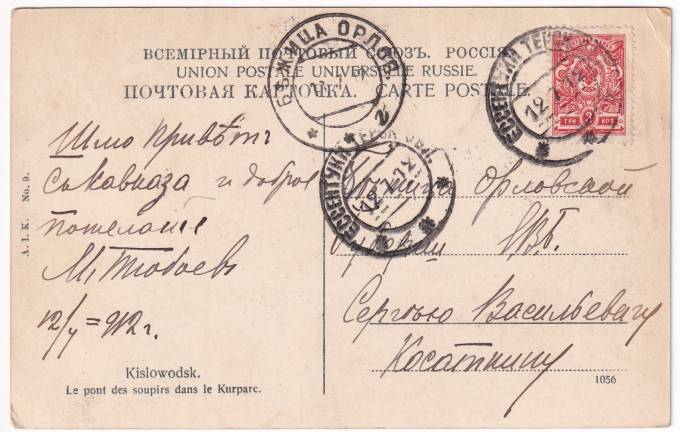 ВСЕМІРНЫЙ ПОЧТОВЫЙ СОЮЗЪ. РОССІЯ
UNION POSTALE UNIVERSELLE RUSSIE.
ПОЧТОВАЯ КАРТОЧКА. CARTE POSTALE.
БѢЖИЦА ОРЛОВ.
ЕССЕНТУКИ ТЕРСК. ОБЛ.
12
ЕССЕНТУКИ ТЕРСК. ОБЛ.
12
ТРИ КОП
3
Шлю Привѣтъ
съ Кавказа и доброе
пожеланіе
М.
912 г.
Бѣжица Орловской
Губерніи
Сергѣю Васильевичу
Косаткину
A. I. K. No. 9.
Kislowodsk.
Le pont des soupirs dans le Kurparc.
1056